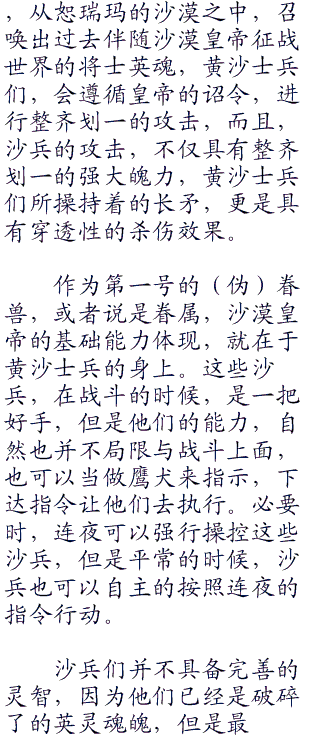 ，从恕瑞玛的沙漠之中，召
唤出过去伴随沙漠皇帝征战
世界的将士英魂，黄沙士兵
们，会遵循皇帝的诏令，进
行整齐划一的攻击，而且，
沙兵的攻击，不仅具有整齐
划一的强大魄力，黄沙士兵
们所操持着的长矛，更是具
有穿透性的杀伤效果。
作为第一号的（伪）眷
兽，或者说是眷属，沙漠皇
帝的基础能力体现，就在于
黄沙士兵的身上。这些沙
兵，在战斗的时候，是一把
好手，但是他们的能力，自
然也并不局限与战斗上面，
也可以当做鹰犬来指示，下
达指令让他们去执行。必要
时，连夜可以强行操控这些
沙兵，但是平常的时候，沙
兵也可以自主的按照连夜的
指令行动。
沙兵们并不具备完善的
灵智，因为他们已经是破碎
了的英灵魂魄，但是最